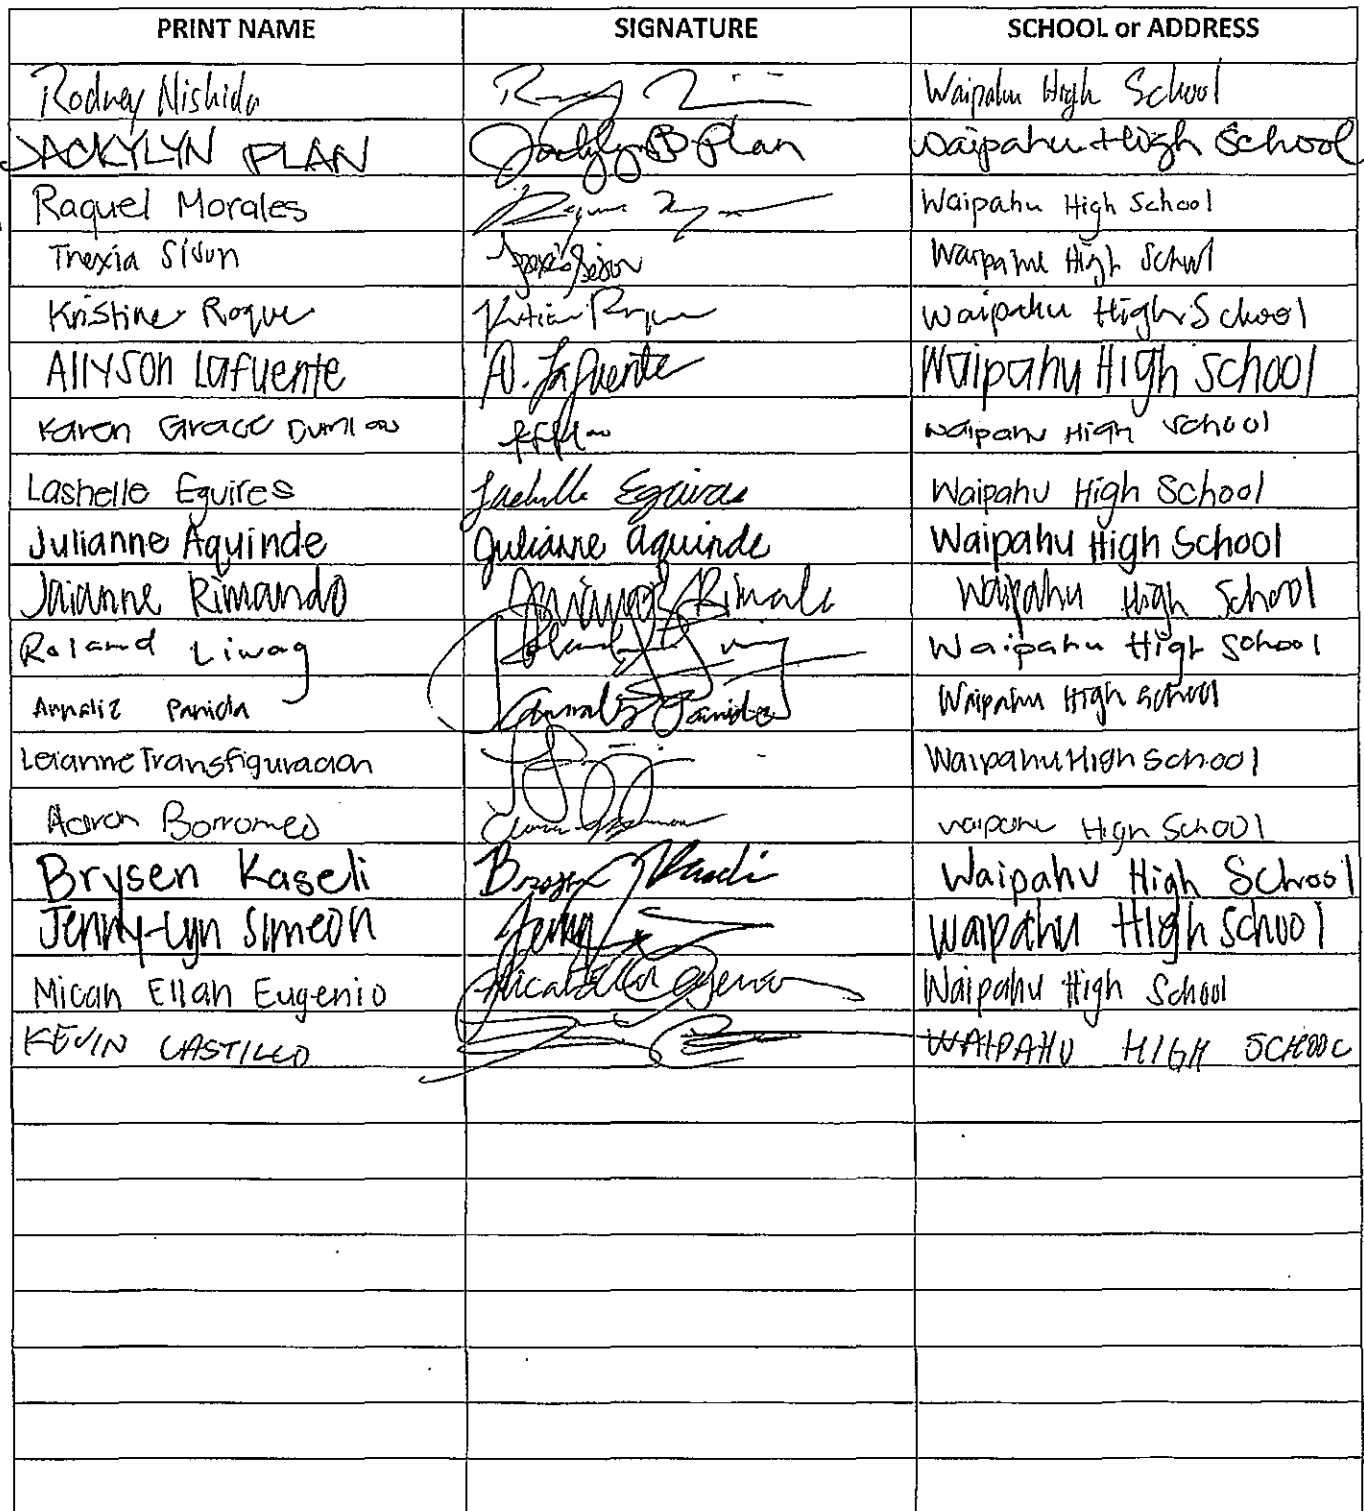 PRINT NAME SIGNATURE SCHOOL or ADDRESS
Rodney Nishida Waipahu High School
JACKYLYN PLAN Jackylyn B Plan Waipahu High School
Raquel Morales Waipahu High School
Trexia Sison Waipahu High School
Kristine Roque Waipahu High School
Allyson Lafuente A. Lafuente Waipahu High School
Karen Grace Dumlao Waipahu High School
Lashelle Eguires Lashelle Eguires Waipahu High School
Julianne Aquinde Julianne Aquinde Waipahu High School
Jaianne Rimando Waipahu High School
Roland Liwag Waipahu High School
Annaliz Panida Annaliz Panida Waipahu High School
Leianne Transfiguracion Waipahu High School
Aaron Borromeo Waipahu High School
Brysen Kaseli Brysen Kaseli Waipahu High School
Jenny-Lyn Simeon Jenny Waipahu High School
Micah Ellah Eugenio Waipahu High School
KEVIN CASTILLO WAIPAHU HIGH SCHOOL